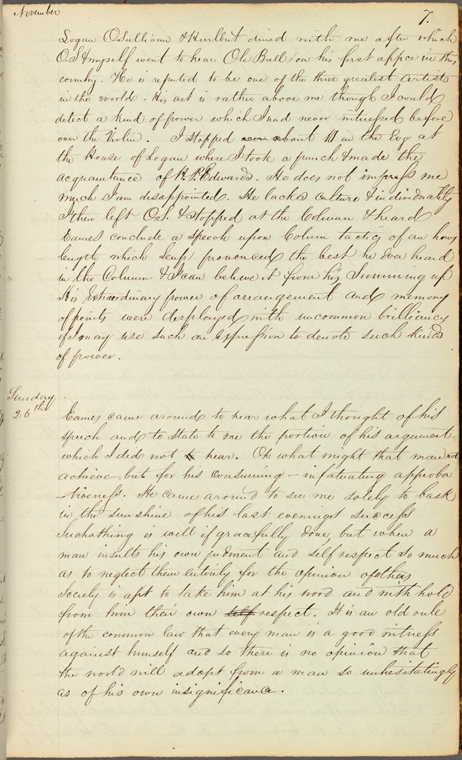 November
7.
Logan O'Sullivan & Hurlbut dined with me after which
O.S. & myself went to hear Ole Bull on his first appce in this
country. He is reputed to be one of the three greatest artists
in the world. His art is rather above me though I could
detect a kind of power which I had never witnessed before
over the Violin. I stopped about 11 in the Evg at
the House of Logan where I took a punch & made the
acquaintance of Edwards. He does not impress me
much I am disappointed. He lacks culture & individuality
I then left O.S. & stopped at the Column & heard
Eames conclude a speech upon Column tactics of an hours
length which pronounced the best he ever heard
in the Column & I can believe it from his Summing up
His Extraordinary power of arrangement and memory
of points were displayed with uncommon brilliancy
if I may use such an expression to denote such kinds
of power.
Sunday
26th
Eames came around to hear what I thought of his
speech and to state to me the portion of his argument
which I did not hear. Oh what might that man not
achieve but for his consuming - infatuating approba
-tiveness. He came around to see me solely to bask
in the sunshine of his last evenings success
Such a thing is well if gracefully done, but when a
man insults his own judment and self respect so much
as to neglect them entirely for the opinion of others
Society is apt to take him at his word and withhold
from him their own self respect. It is an old rule
of the common law that every man is a good witness
against himself and so there is no opinion that
the world will adopt from a man so unhesitatingly
as of his own insignificance.